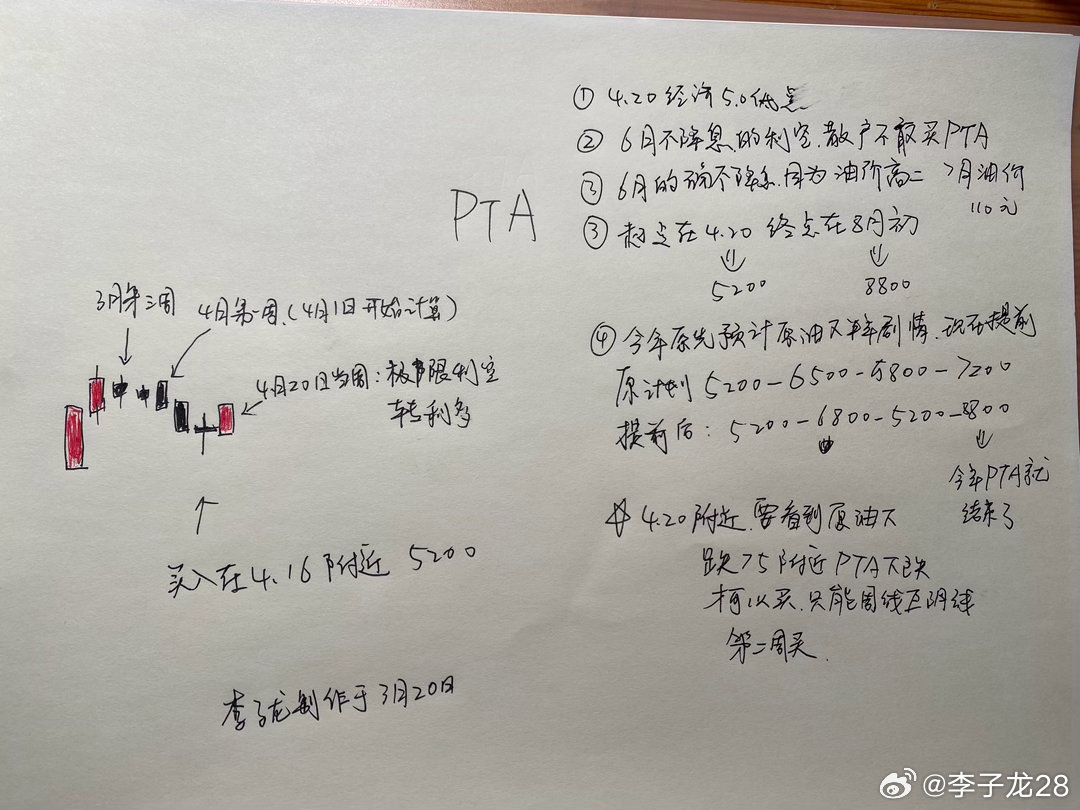 PTA
3月第三周
4月第一周(4月1日开始计算)
4月20日当周:极限利空
转利多
买入在4.16附近 5200
李子龙制作于3月20日
① 4.20经济5.0低点
② 6月不降息的利空,散户不敢买PTA
③ 6月的确不降息,因为油价高 7月油价
110元
③ 起点在4.20 终点在8月初
5200 8800
④ 今年原先预计原油下半年剧情,现在提前
原计划 5200-6500-5800-7200
提前后: 5200-6800-5200-8800
今年PTA就
结束了
☆ 4.20附近,要看到原油下
跌75附近PTA不跌
可以买,只能周线阴线
第二周买.
@李子龙28